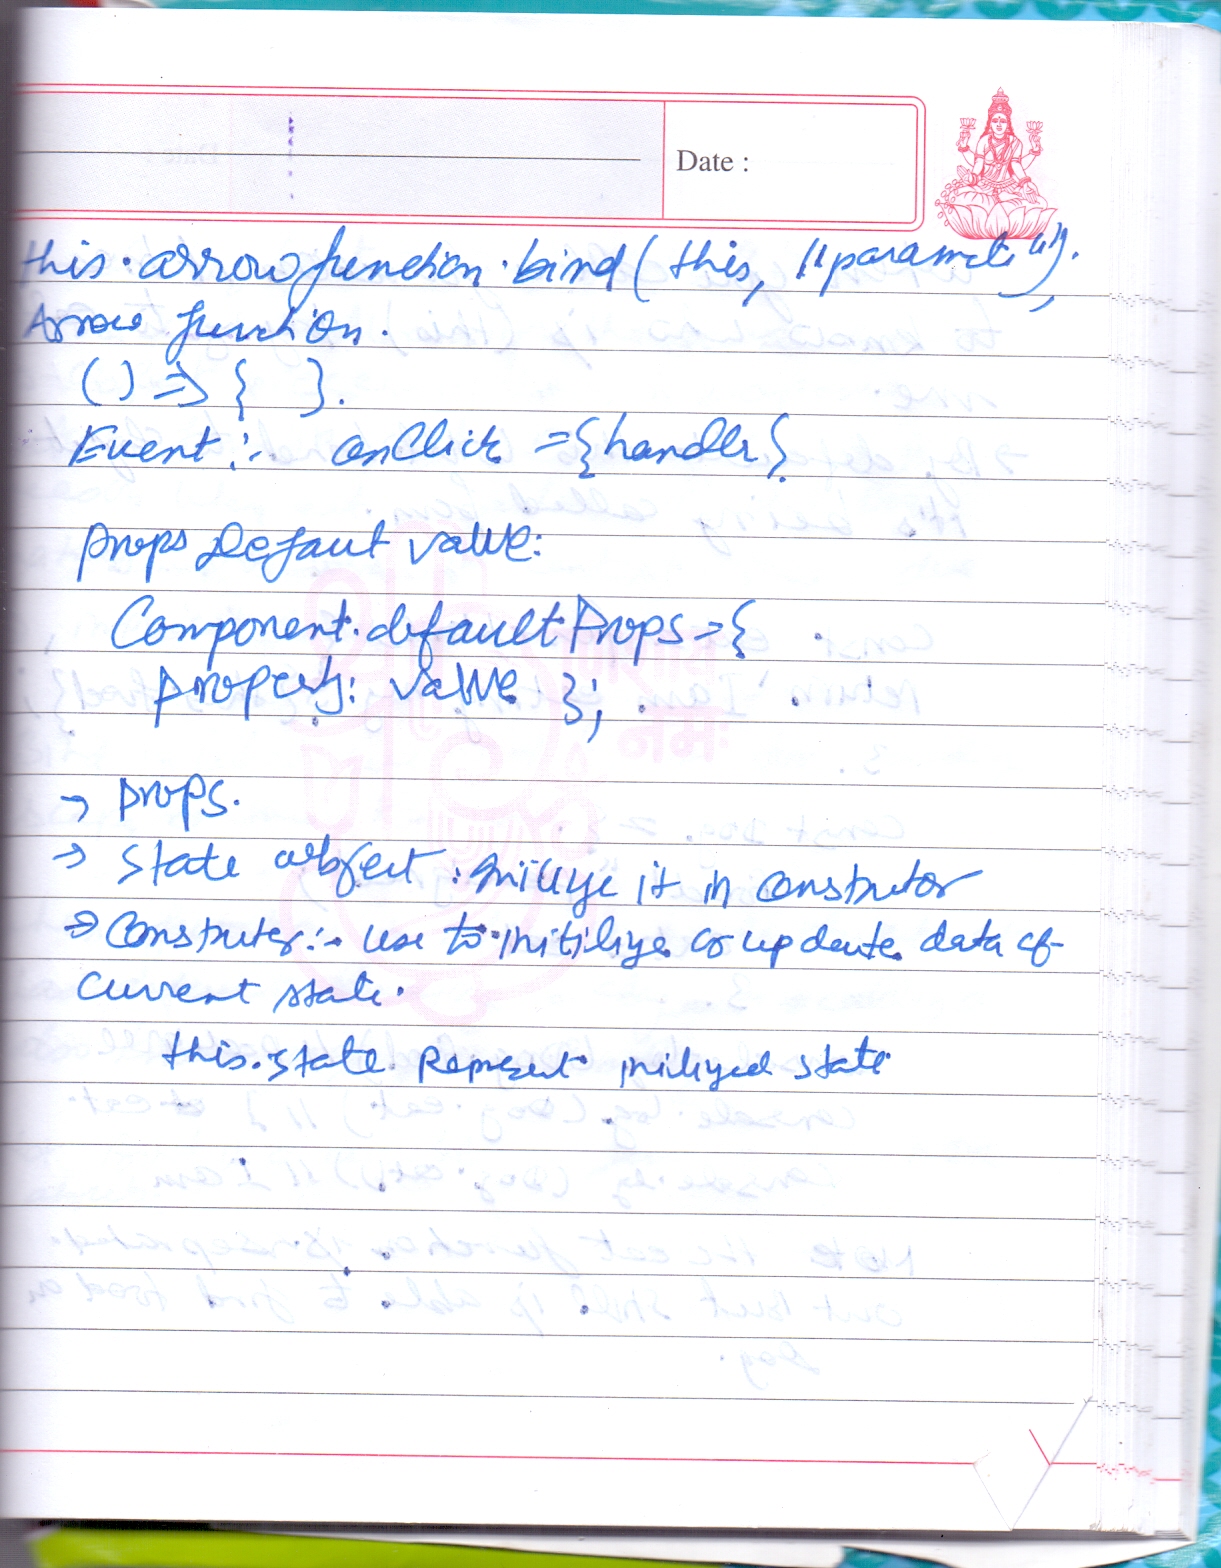 Date :
this.arrowfunction.bind(this, "parameter");
Arrow function.
() => { }.
Event :- onClick ={handler}
props Defaut value:
Component.defaultProps ={
property: value };
→ props.
→ state object : it in construtor
→ Construter :- use to initilize or update data of
current state.
this.state Represent state